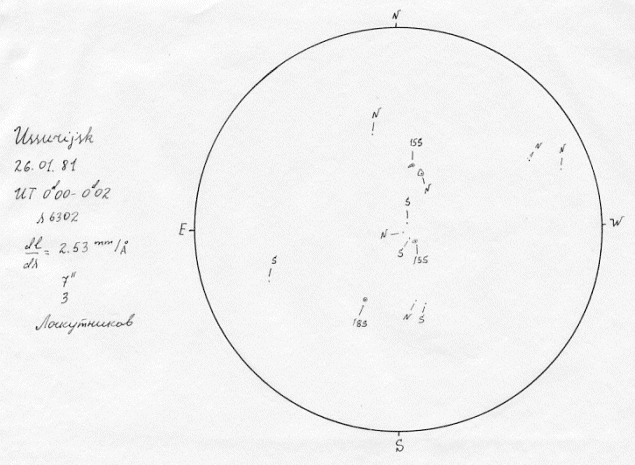 Ussurijsk
26.01.81
UT 0ʰ00-0ʰ02
λ 6302
dl/dλ = 2.53 mm/Å
7"
3
Лоскутников
N
N
15S
N N
N
S
E
N
W
S
15S
S
18S
N S
S